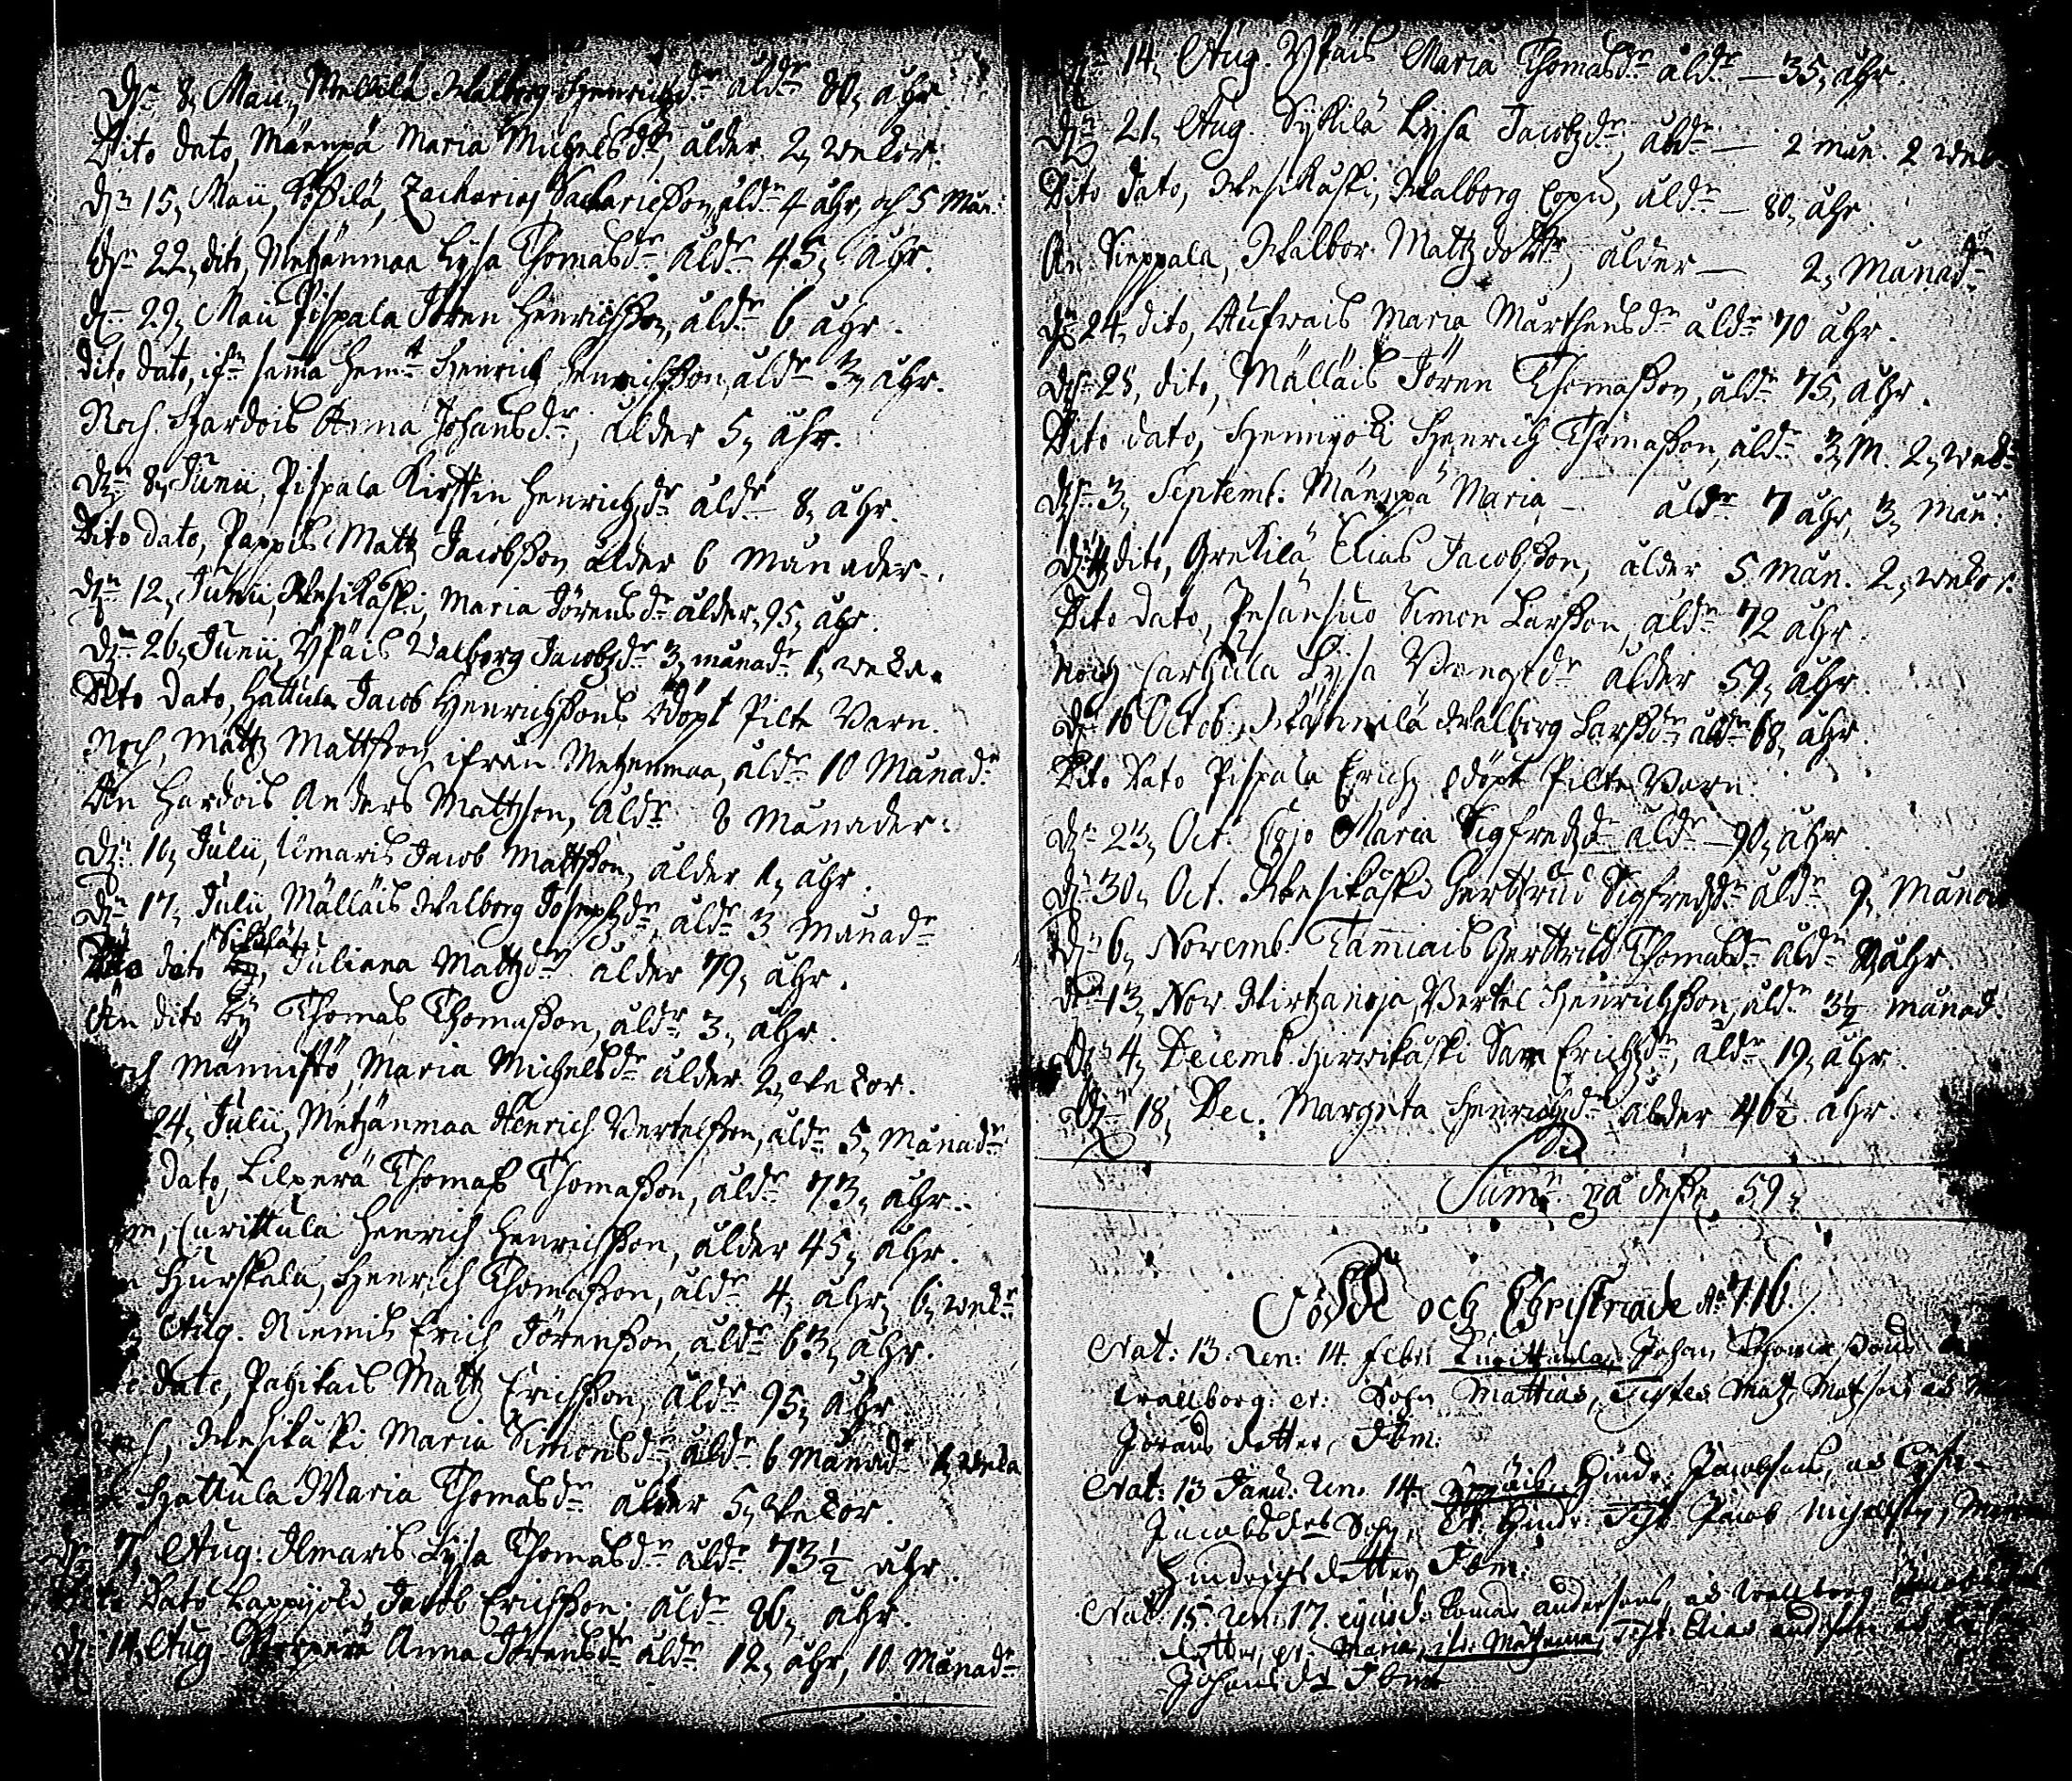 Dn 8, Maii, Mellilä Walborg Henrichzdr åldr 80, åhr.
Dito dato, Mäenpä Maria Michelsdr, ålder 2, wekor.
Dn 15, Maii, Zacharias Zachariesson, åldr 4 åhr, och 5 Mån:
Dn 22, dito, Metzänmaa Lysa Thomasdr åldr 45, åhr.
Dn 29, Maii Pispala Jören Henrichsson, åldr 6 åhr.
Dito dato, ifn samma hemt Henrich Henrichsson, åldr 3, åhr.
Noch Hardois Anna Johansdr, ålder 5, åhr.
Dn 8, Junii, Pispala Kirstin Henrichzdr åldr 8, åhr.
Dito dato, Pappils Mattz Jacobsson ålder 6 månader.
Dn 12, Junii, Wesikåski, Maria Jörensdr ålder, 95, åhr.
Dn 26, Junii, Ypäis Walborg Jacobzdr 3, månadr 1, weka.
Dito dato, Hattula Jacob Henrichssons odöpt Pilte Barn.
Noch, Mattz Mattsson ifrån Metzenmaa, åldr 10 Månadr
Än Hardois Anders Mattzson, åldr 8 Månader.
Dn 16, Julii, Ilmaris Jacob Mattsson, ålder 1, åhr.
Dn 17, Julii, Mälläis Walborg Josephzdr, åldr 3 månadr
Dito dato Juliana Mattzdr ålder 79, åhr.
Än dito By Thomas Thomasson, åldr 3, åhr.
Männistö, Maria Michelsdr ålder 2, wekor.
24, Julii, Metzänmaa Henrich Bertelsson, åldr 5, Månadr
dato, Lilperä Thomas Thomasson, åldr 73, åhr.
Curittula Henrich Henrichsson, ålder 45, åhr.
Hurskala, Henrich Thomasson, åldr 4, åhr, 6, wekr
Aug. Niemis Erich Jörensson, åldr 63, åhr.
dato, Pahikais Mattz Erichsson, åldr 95, åhr
Wesikåski Maria Simonsdr, åldr 6 månadr 1, weka
Hattula Maria Thomasdr ålder 5, wekor.
Dn 7, Aug: Ilmaris Lysa Thomasdr åldr 73 1/2 åhr.
Dato Lappijoki, Jacob Erichsson, åldr 86, åhr.
Dn 14, Aug Anna Jörensdr åldr 12, åhr, 10 Månadr
Dn 14, Aug. Ypäis Maria Thomasdr åldr — 35, åhr
Dn 21, Aug. Sykilä Lysa Jacobzdr, åldr — 2 mån. 2 wek
Dito dato, Wesikåski, Walborg, åldr — 80, åhr.
Än Sieppala, Walbor Mattzdottr, ålder — 2, månadr
Dn 24, dito, Maria Mårthensdr åldr 70 åhr.
Dn 28, dito, Mälläis Jören Thomasson, åldr 75, åhr.
Dito dato, Hennijoki Henrich Thomasson, åldr 3, M. 2, wekr
Dn 3, Septemb: Mäenpä Maria — åldr 7 åhr, 3, mån:
dito, Grekilä Elias Jacobsson, ålder 5. mån. 2, wekor.
Dito dato, Pesänsuo Simon Larsson, åldr 72 åhr
Noch Carhula Lysa ålder 59, åhr.
Dn 16 Octob: Walborg Larsdr åldr 68, åhr
Dito Dato Pispala Erichz odöpt Pilte Barn.
Dn 23, Oct. Maria Sigfredzdr åldr — 90, åhr
Dn 30, Oct. Wesikåski Gertrud Sigfredzdr åldr 9, Månad
Dn 6, Novemb: Tammiais Gertrud Thomasdr åldr åhr.
Dn 13, Nov Wirtzanoja, Bertel Henrichsson, åldr 3 1/2 månad.
Dn 4, Decemb. Hirwikåski Sara Erichzdr, åldr 19, åhr.
Dn 18, Dec. Margeta Henrichzdr ålder 46 1/2 åhr.
Sumn på desse 59,
Födde och Christnade Ao 1716.
Nat: 13. Ren: 14. febr: Curittula, Johan Thomassons
Wallborg: et: Sohn Mattias, Testes Matz Matsson
Jörans dotter Ibm:
Nat: 13 Janu. Ren. 14 Ypäis, Hindr: Jacobsons,
Jacobsdrs Sohn, Hindr: Test: Jacob Michelson,
Hindrichs dotter Ibm:
Nat: 15 Ren: 17. Tomas andersons, Wallborg
dotter, Maria, Test: Elias andersson
Johansdr Ibm